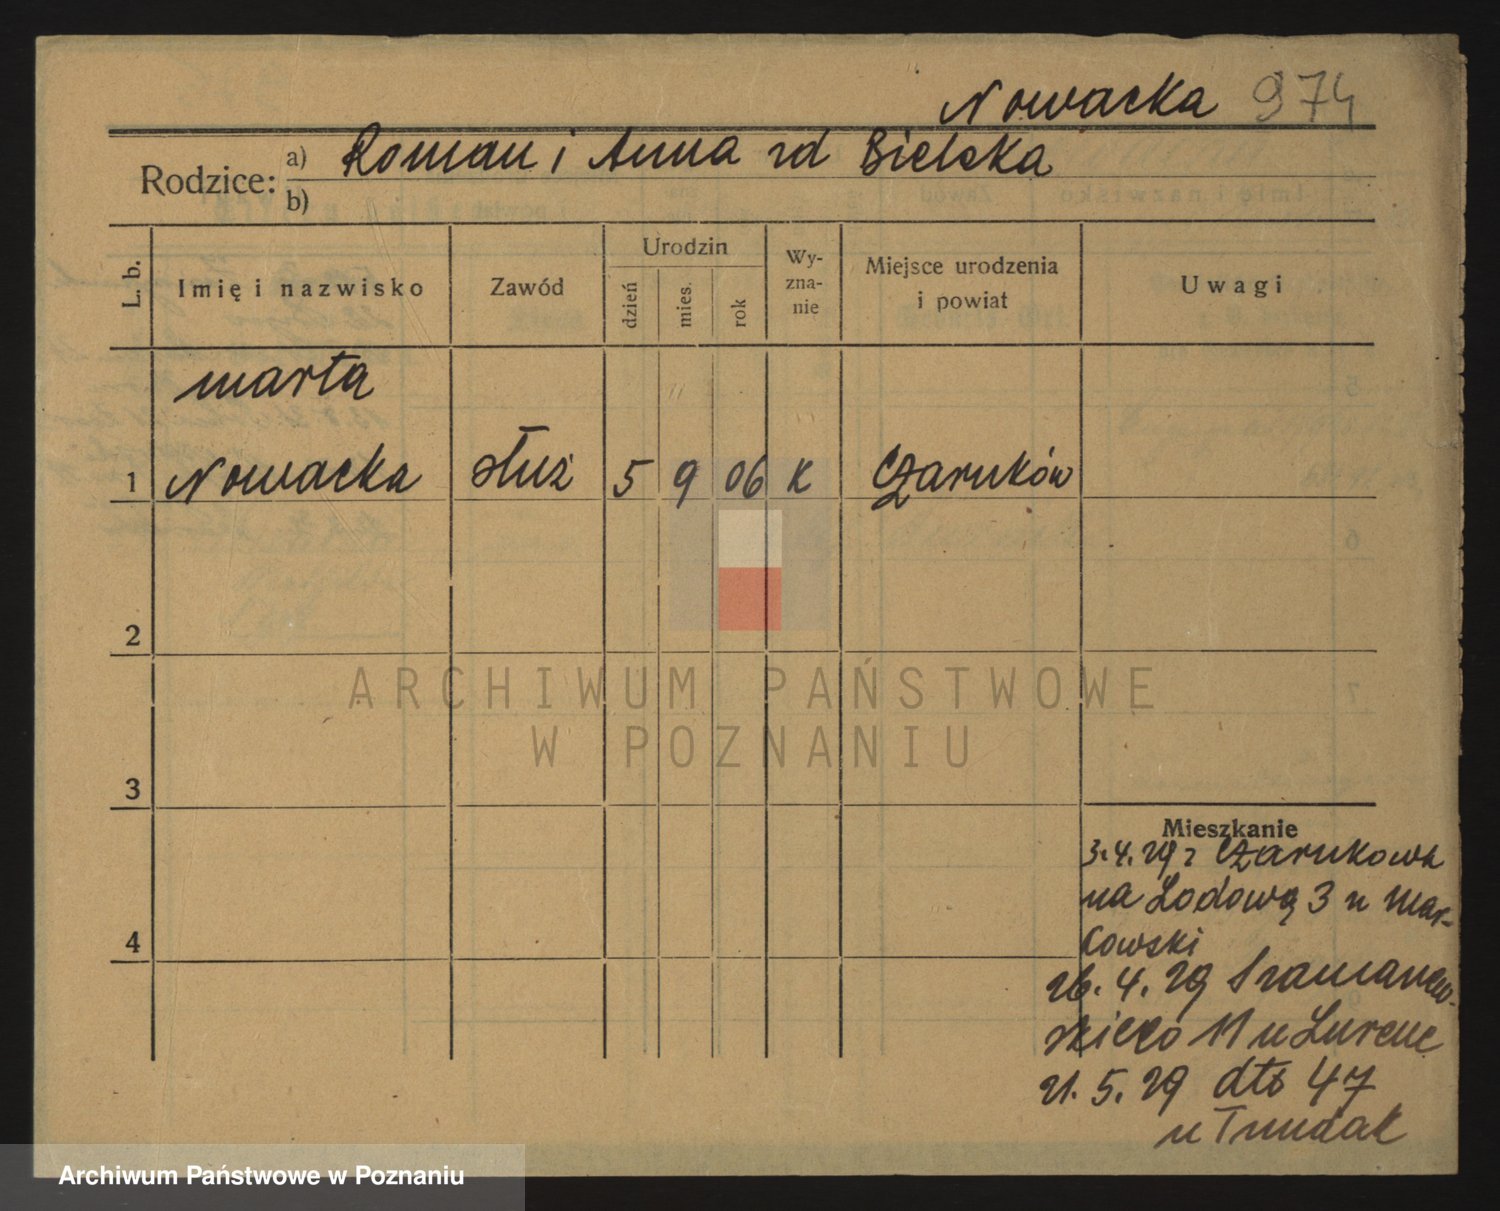 Nowacka 974
Rodzice: a) Roman i Anna zd Bielska
b)
L. b.
Imię i nazwisko
Zawód
Urodzin
dzień
mies.
rok
Wy-
zna-
nie
Miejsce urodzenia
i powiat
Uwagi
Marta
1 Nowacka służ 5 9 06 K Czarnków
2
3
4
Mieszkanie
3.4.29 z Czarnkowa
na Lodową 3 u Mar-
kowski
26.4.29 Szamarzew-
skiego 11 u
21.5.29 dto 47
u
ARCHIWUM PAŃSTWOWE
W POZNANIU
Archiwum Państwowe w Poznaniu